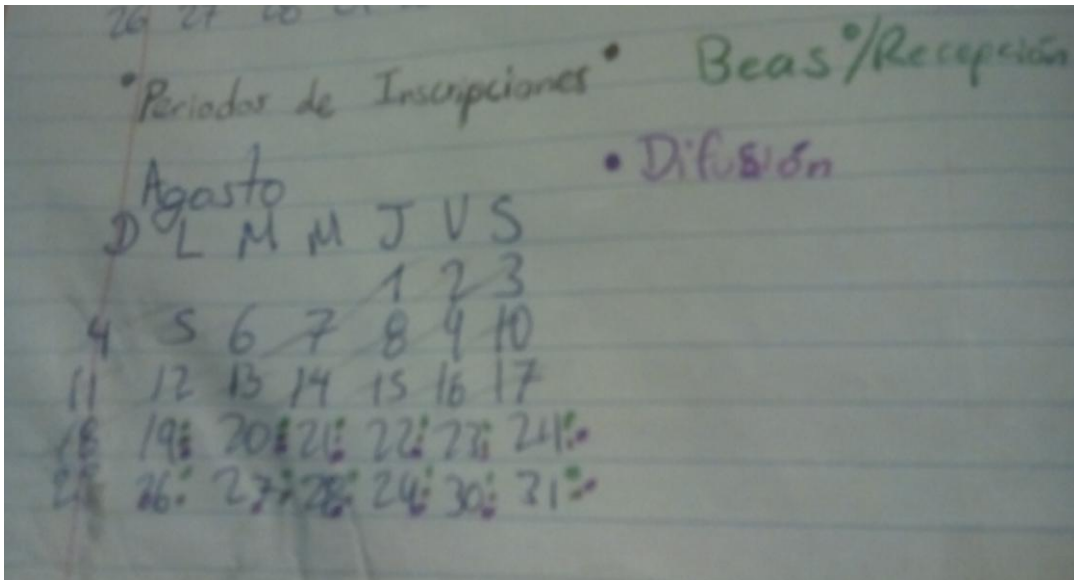 26 27 28
• Periodos de Inscripciones • Beas°/Recepción
• Difusión
Agosto
D L M M J V S
1 2 3
4 5 6 7 8 9 10
11 12 13 14 15 16 17
18 19 20 21 22 23 24
26 27 28 24 30 31